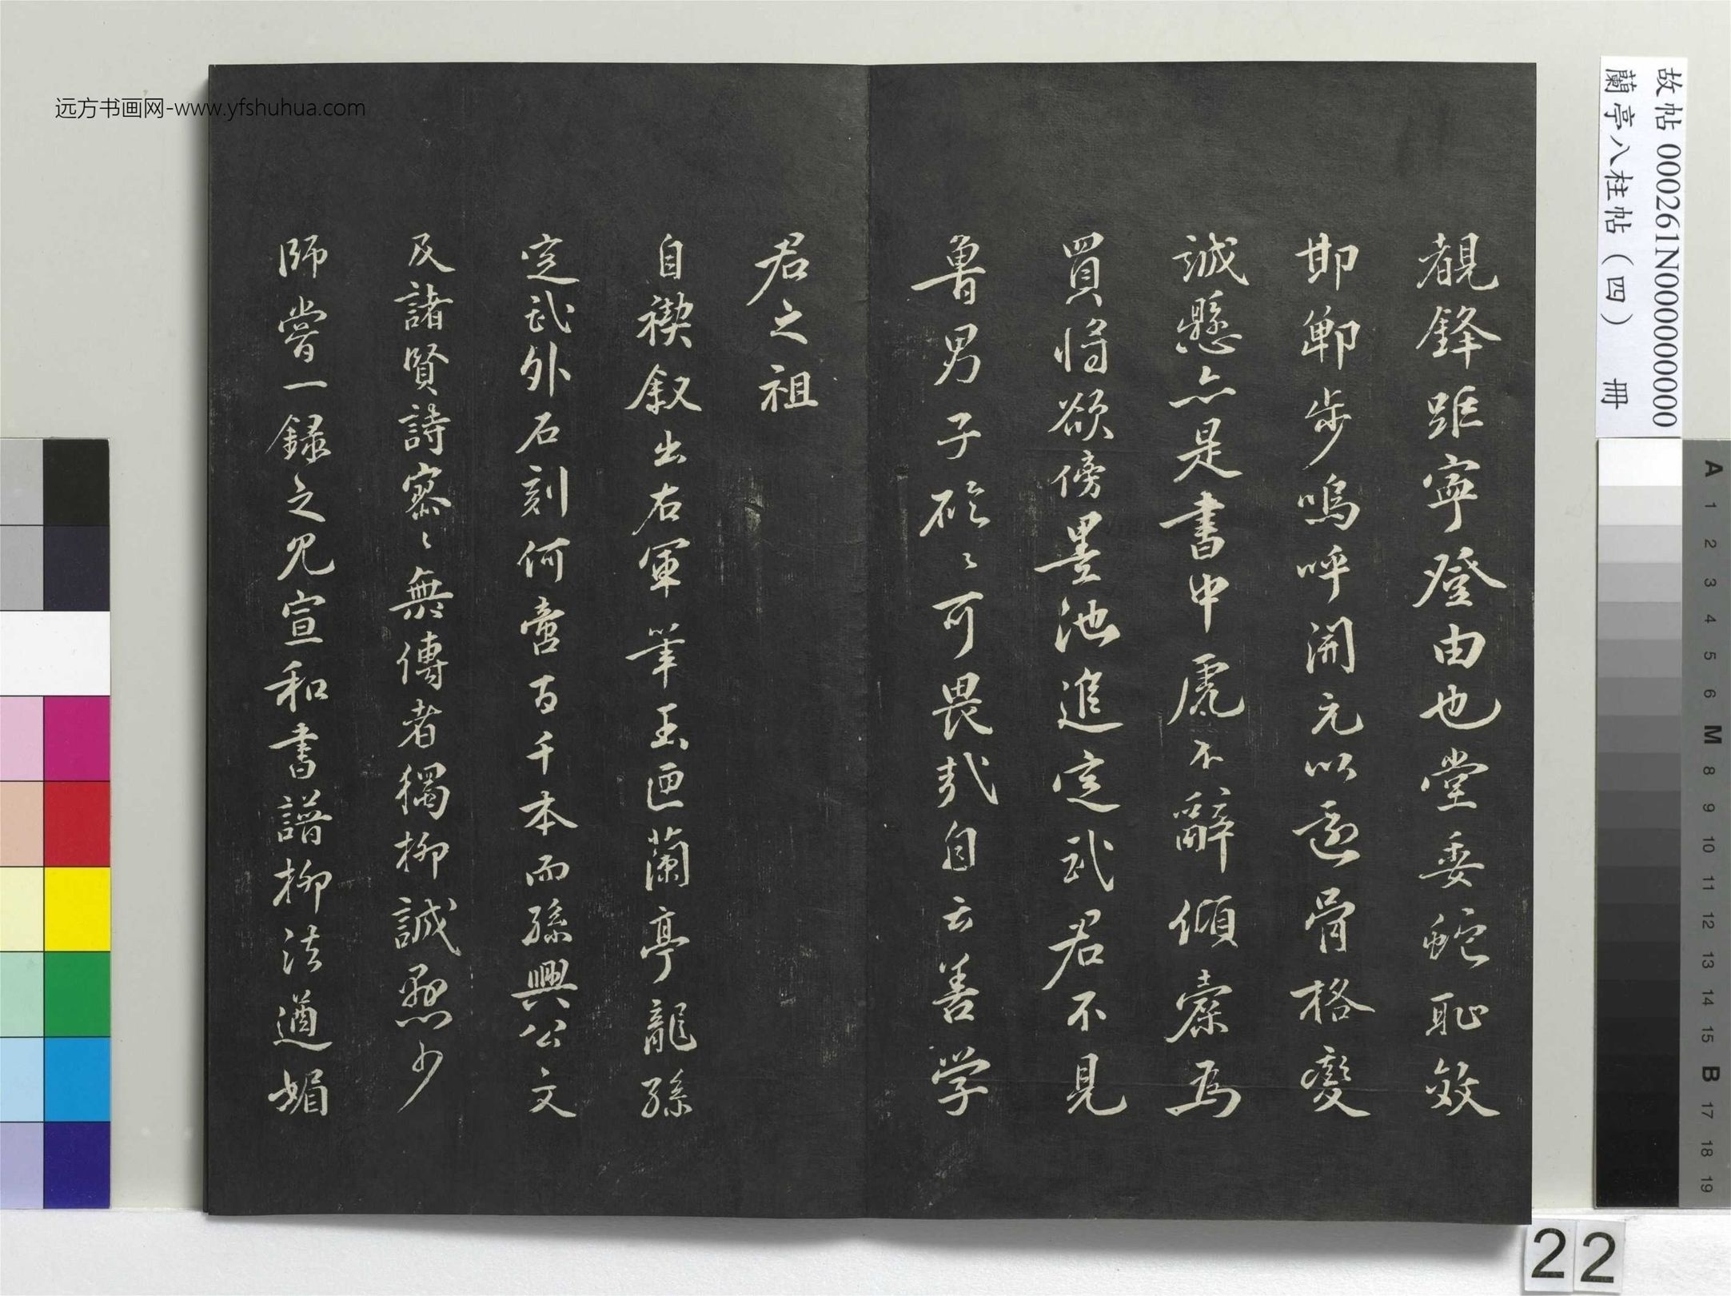 覩鋒距寧登由也堂委蛇恥效
邯鄲步嗚呼開元以還骨格變
誠懸亦是書中虎不辭傾橐為
買將欲傍墨池進定武君不見
魯男子硁〻可畏哉自云善学
君之祖
自禊叙出右軍筆玉匣蘭亭龍孫
定武外石刻何啻百千本而孫興公文
及諸賢詩寥〻無傳者獨柳誠懸少
師嘗一錄之見宣和書譜柳法遒媚
远方书画网-www.yfshuhua.com
故帖 000261N000000000
蘭亭八柱帖（四） 冊
A 1 2 3 4 5 6 M 8 9 10 11 12 13 14 15 B 17 18 19
22